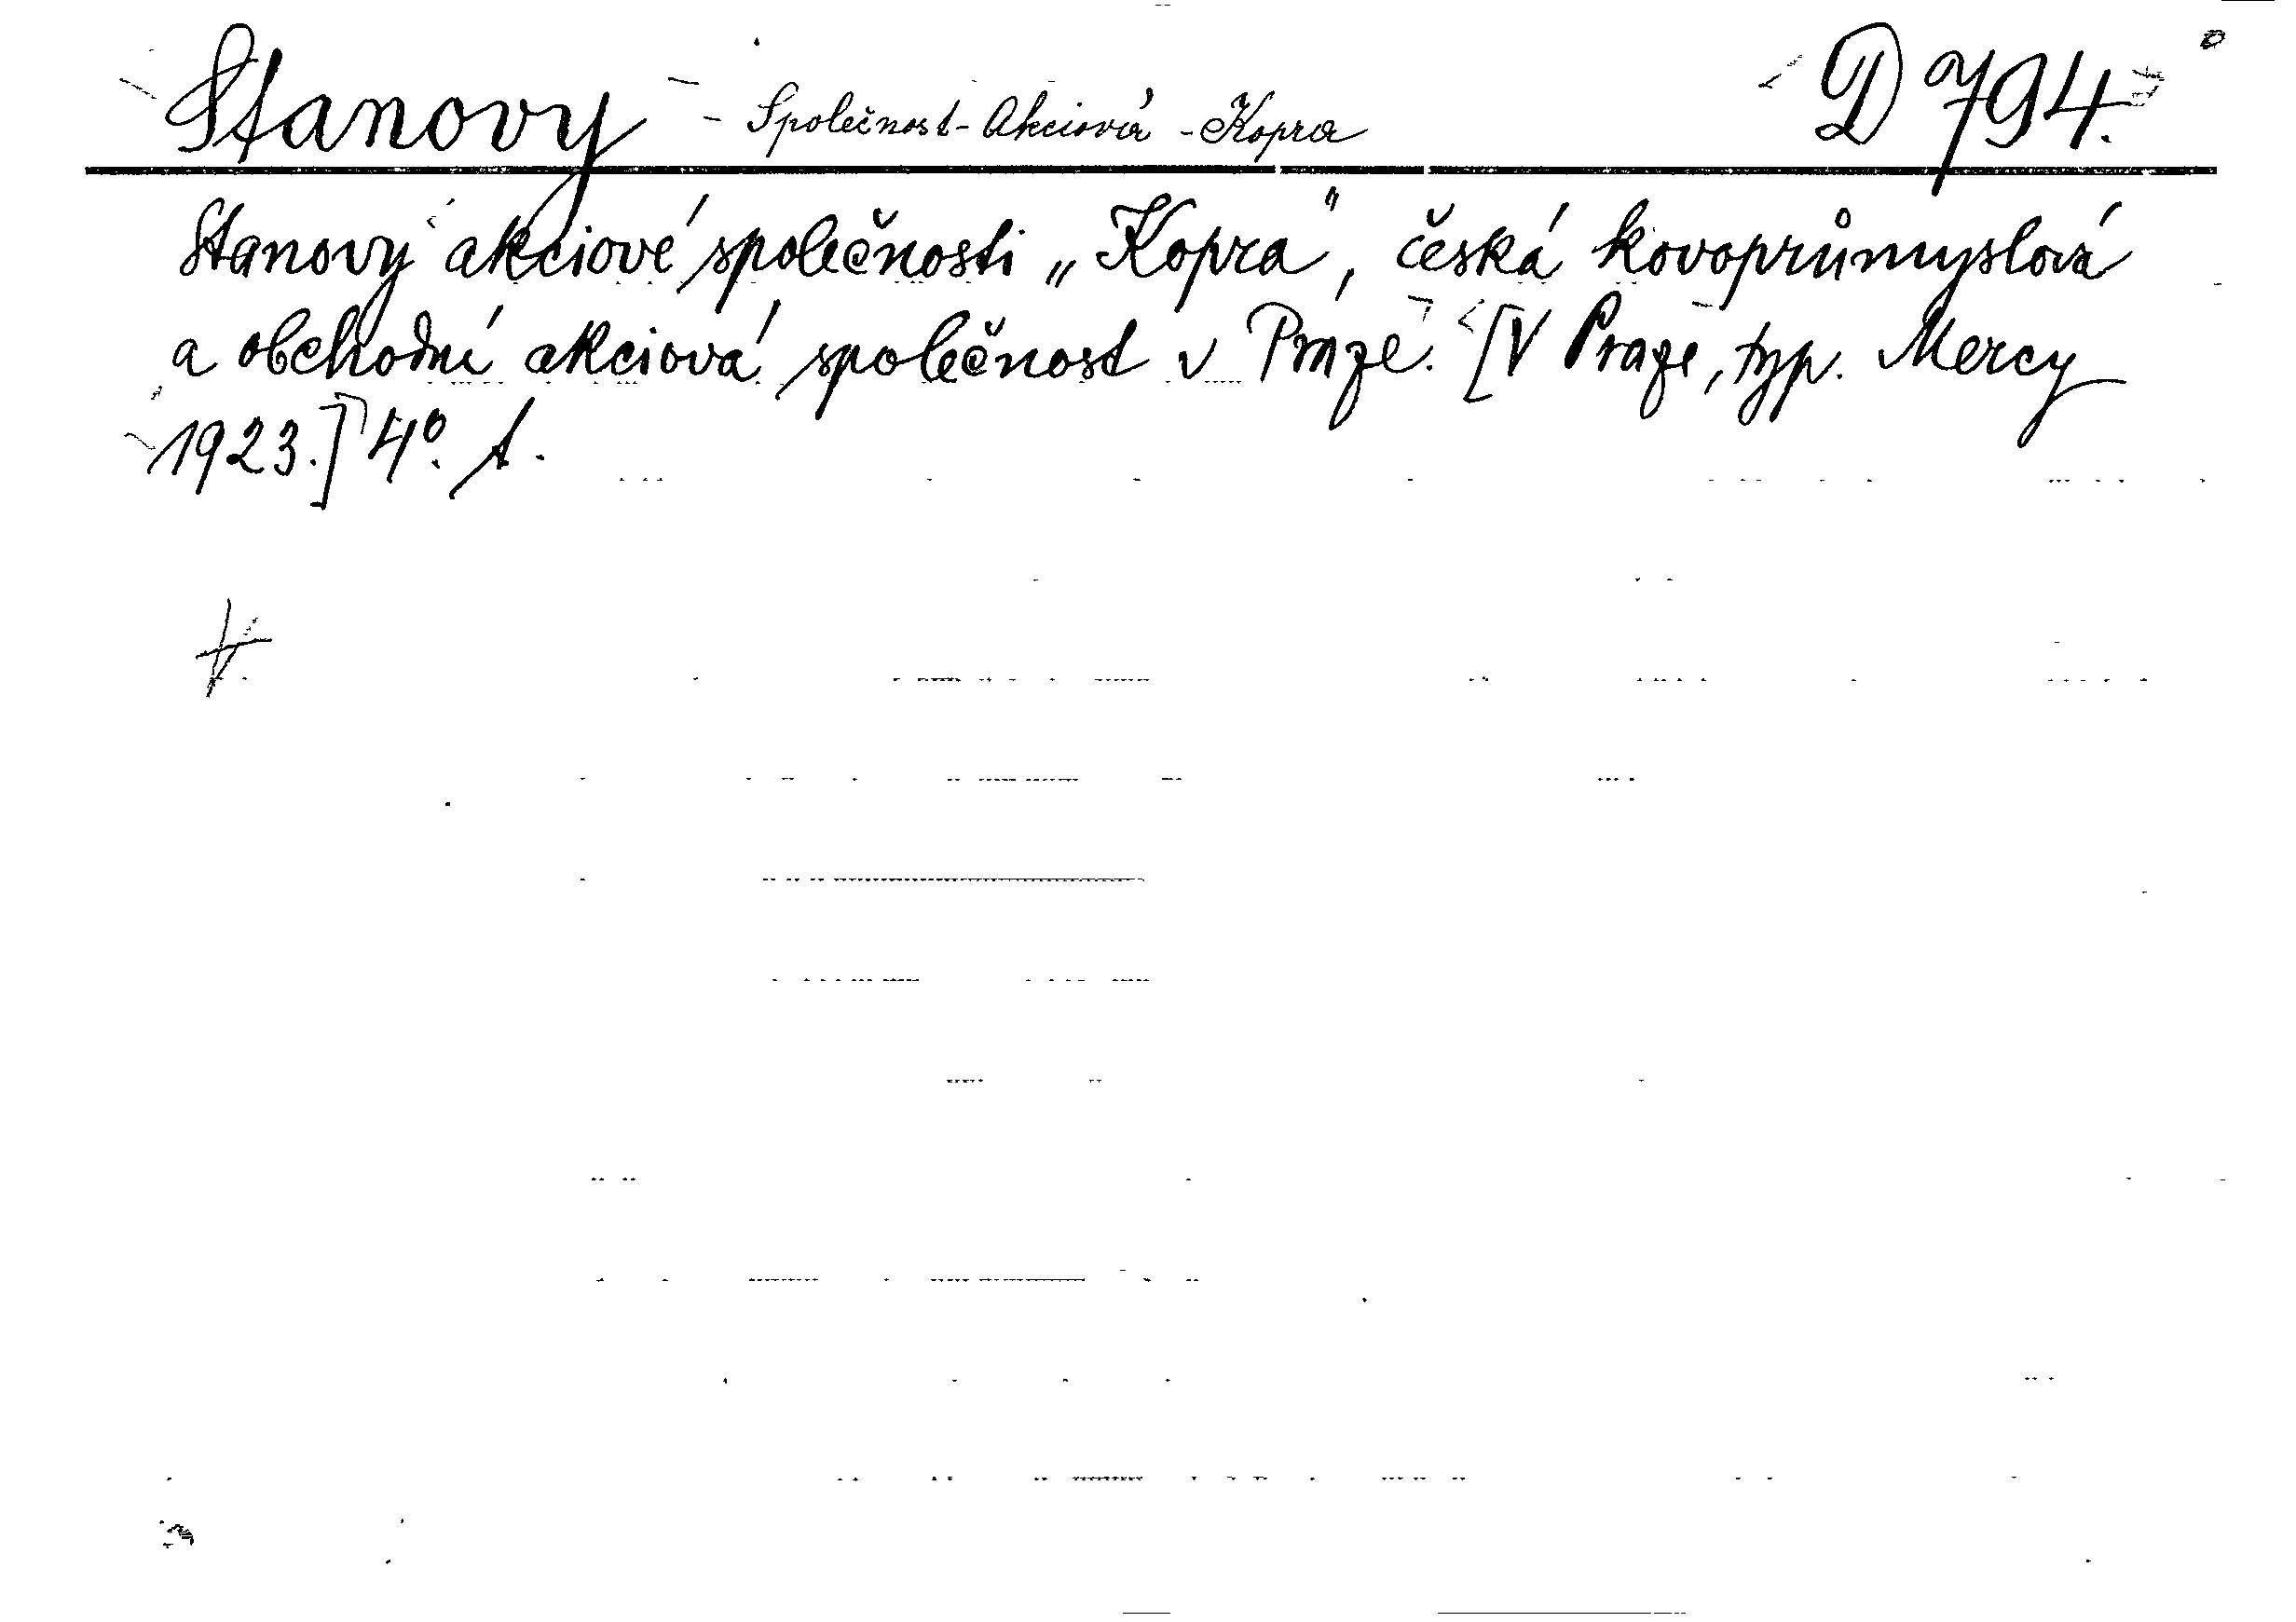 Stanovy - Společnost - Akciová - Kopra D 794.
Stanovy akciové společnosti „Kopra", česká kovoprůmyslová
a obchodní akciová společnost v Praze. [V Praze, typ. Mercy
1923.] 4º.